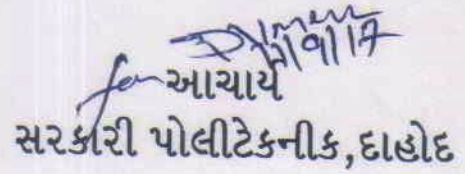 for આચાર્ય
સરકારી પોલીટેકનીક,દાહોદ